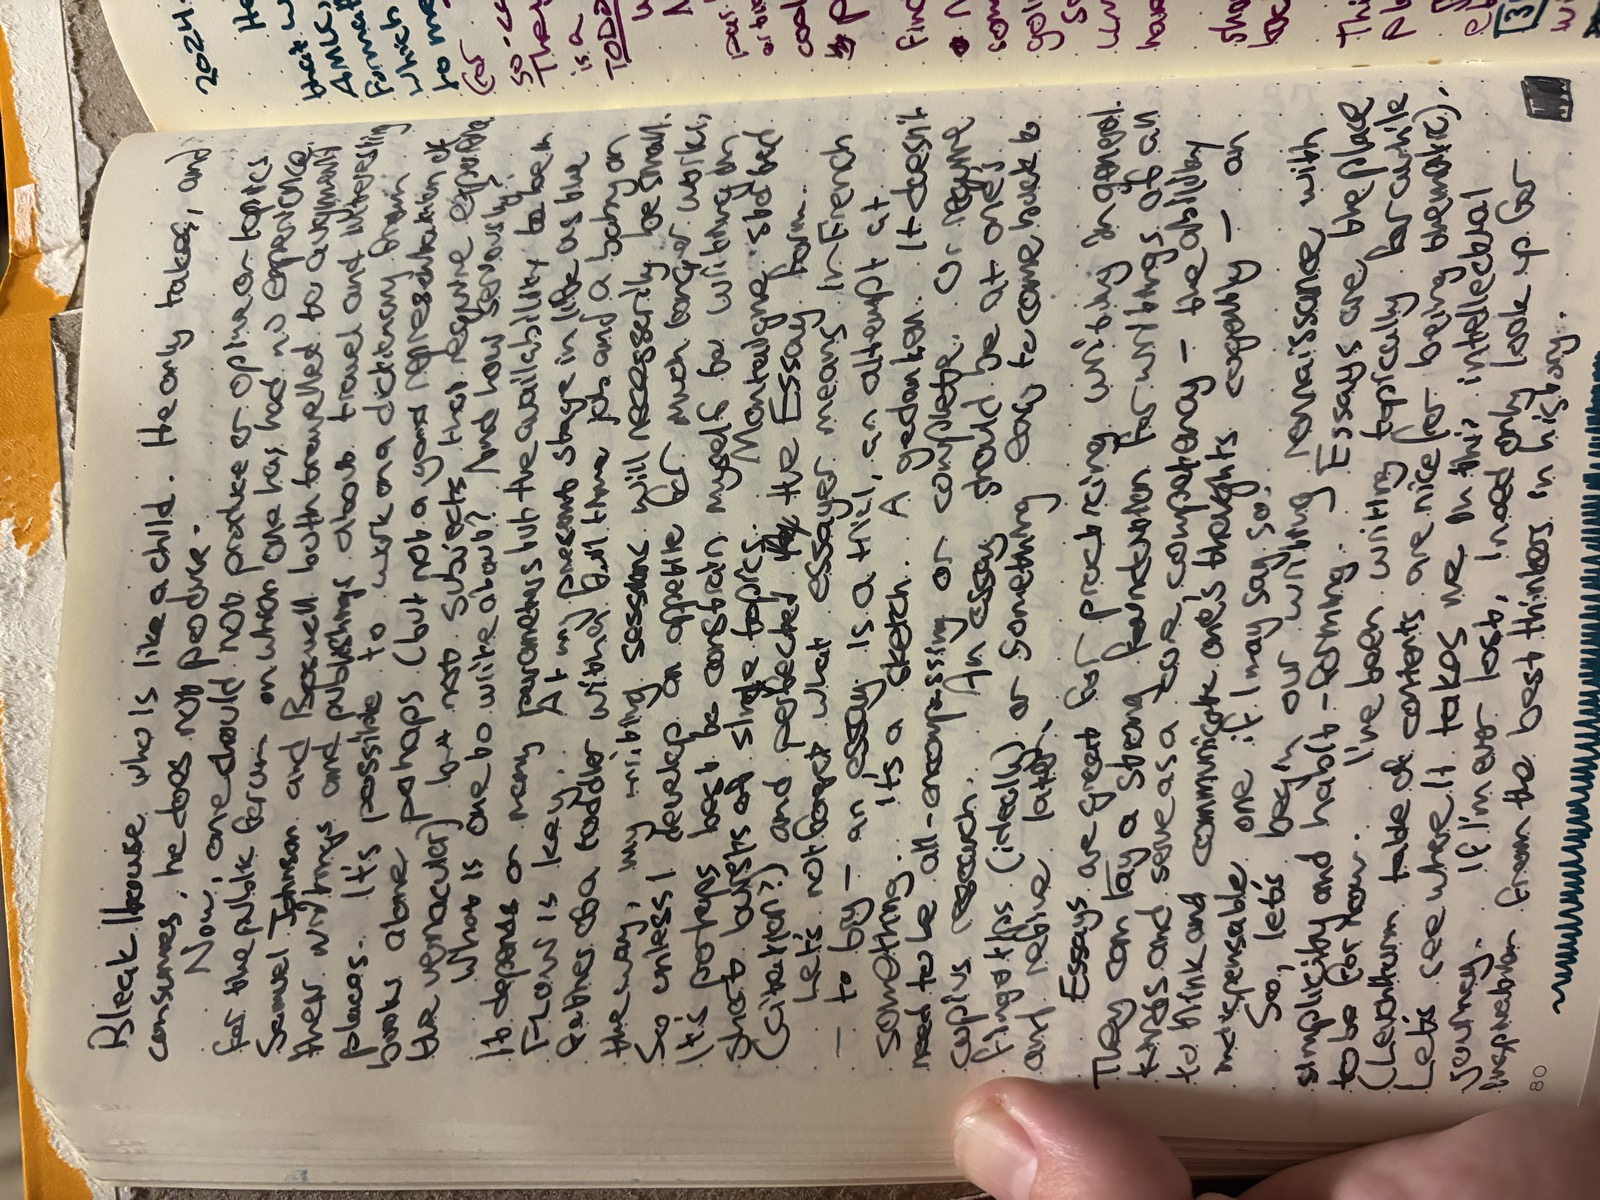 Bleak House, who is like a child. He only takes, and
consumes, he does not produce.
Now, one should not produce or opine on topics
for the public forum on which one has had no experience.
Samuel Johnson and Boswell both travelled to augment
their writings and publishings about travel and interesting
places. It's possible to work on a dictionary from
books alone perhaps (but not a good representation of
the vernacular) but not subjects that require exposure.
What is one to write about? And how seriously?
It depends on many parameters but the availability to be in
Flow is key. At my present stage in life as the
father of a toddler with a full time job and a baby on
the way, my writing sessions will necessarily be small.
So unless I develop an appetite for much longer works,
it's perhaps best be constrain myself to writing in
short bursts of single topics. Montaigne started
(citation?) and perfected the Essay form.
Let's not forget what essayer means in French
— to try — an essay is a trial, an attempt at
something. It's a sketch. A gedanken. It doesn't
need to be all-encompassing or complete. Or require
copius research. An essay should be at one's
fingertips (ideally) or something easy to come back to
and refine later.
Essays are great for practicing writing in general.
They can lay a strong foundation for writings of all
kinds and serve as a core competency — the ability
to think and communicate one's thoughts cogently — an
indispensable one if I may say so.
So, let's begin our writing renaissance with
simplicity and habit-forming. Essays are the place
to be for now. I've been writing topically for a while
(Leuchtturm table of contents are nice for being thematic).
Let's see where it takes me in this intellectual
journey. If I'm ever lost, I need only look up for
inspiration from the best thinkers in history.
80
2024.
that w
AMK,
format
which
to me
(for
so-c
The
is a
TODA